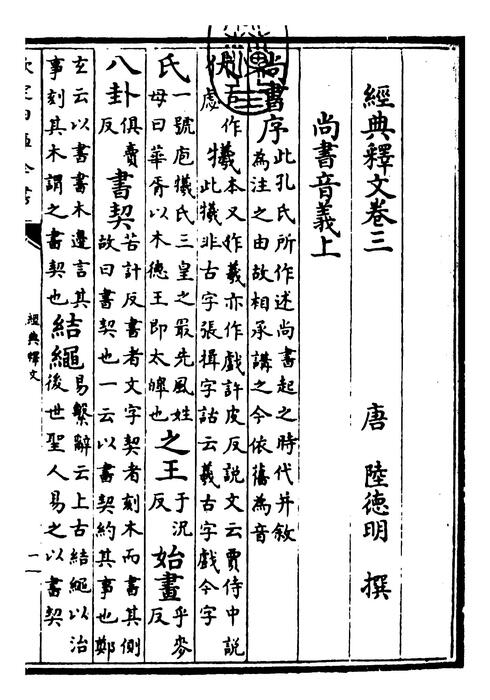 經典釋文卷三
唐 陸德明 撰
尚書音義上
尚書序此孔氏所作述尚書起之時代并敘
為注之由故相承講之今依舊為音
古作
處
犧本又作羲亦作戲許皮反說文云賈侍中說
此犧非古字張揖字詁云羲古字戲今字
氏一號庖犧氏三皇之最先風姓
母曰華胥以木德王即太皞也
之王于況
反
始畫乎麥
反
八卦俱賣
反
書契苦計反書者文字契者刻木而書其側
故曰書契也一云以書契約其事也鄭
玄云以書書木邊言其
事刻其木謂之書契也
結繩易繫辭云上古結繩以治
後世聖人易之以書契
經典釋文
一